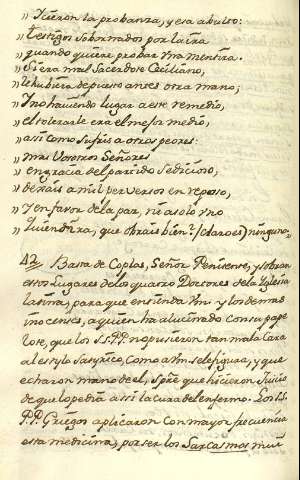 „ Hicieron la probanza, y esa ahulto:
„ testigos sobornados por la ira
„ quando quiere probar una mentira.
„ Si era mal Sacerdote Ceciliano,
„ le hubiera depuesto antes otra mano;
„ Y no haviendo lugar a este remedio,
„ el tolerarle era el mejor medio,
„ assi como sufris a otros peores:
„ mas Vosotros Señores
„ en gracia del partido sedicioso,
„ dexais a mil perversos en reposo,
„ Y en favor de la paz, ni a solo uno
„ Quien dirá, que obrais bien? (claro es) ninguno.
42,, Basta de Coplas, Señor Penisense, y sobran
estos lugares de los quatro Doctores de la Yglesia
latina, para que entienda Vm. y los demas
inocentes, a quien ha alucinado con su pape
lote, que los S.S. P.P. no pusieron tan mala cara
al estylo satyrico, como a Vm. se le figura, y que
echaron mano de el, spre. que hicieron Juicio
de que lo pedia assi la cura del enfermo. Los S.S.
P.P. Griegos aplicaron con mayor frecuencia
esta medicina, por ser los Sarcasmos mui